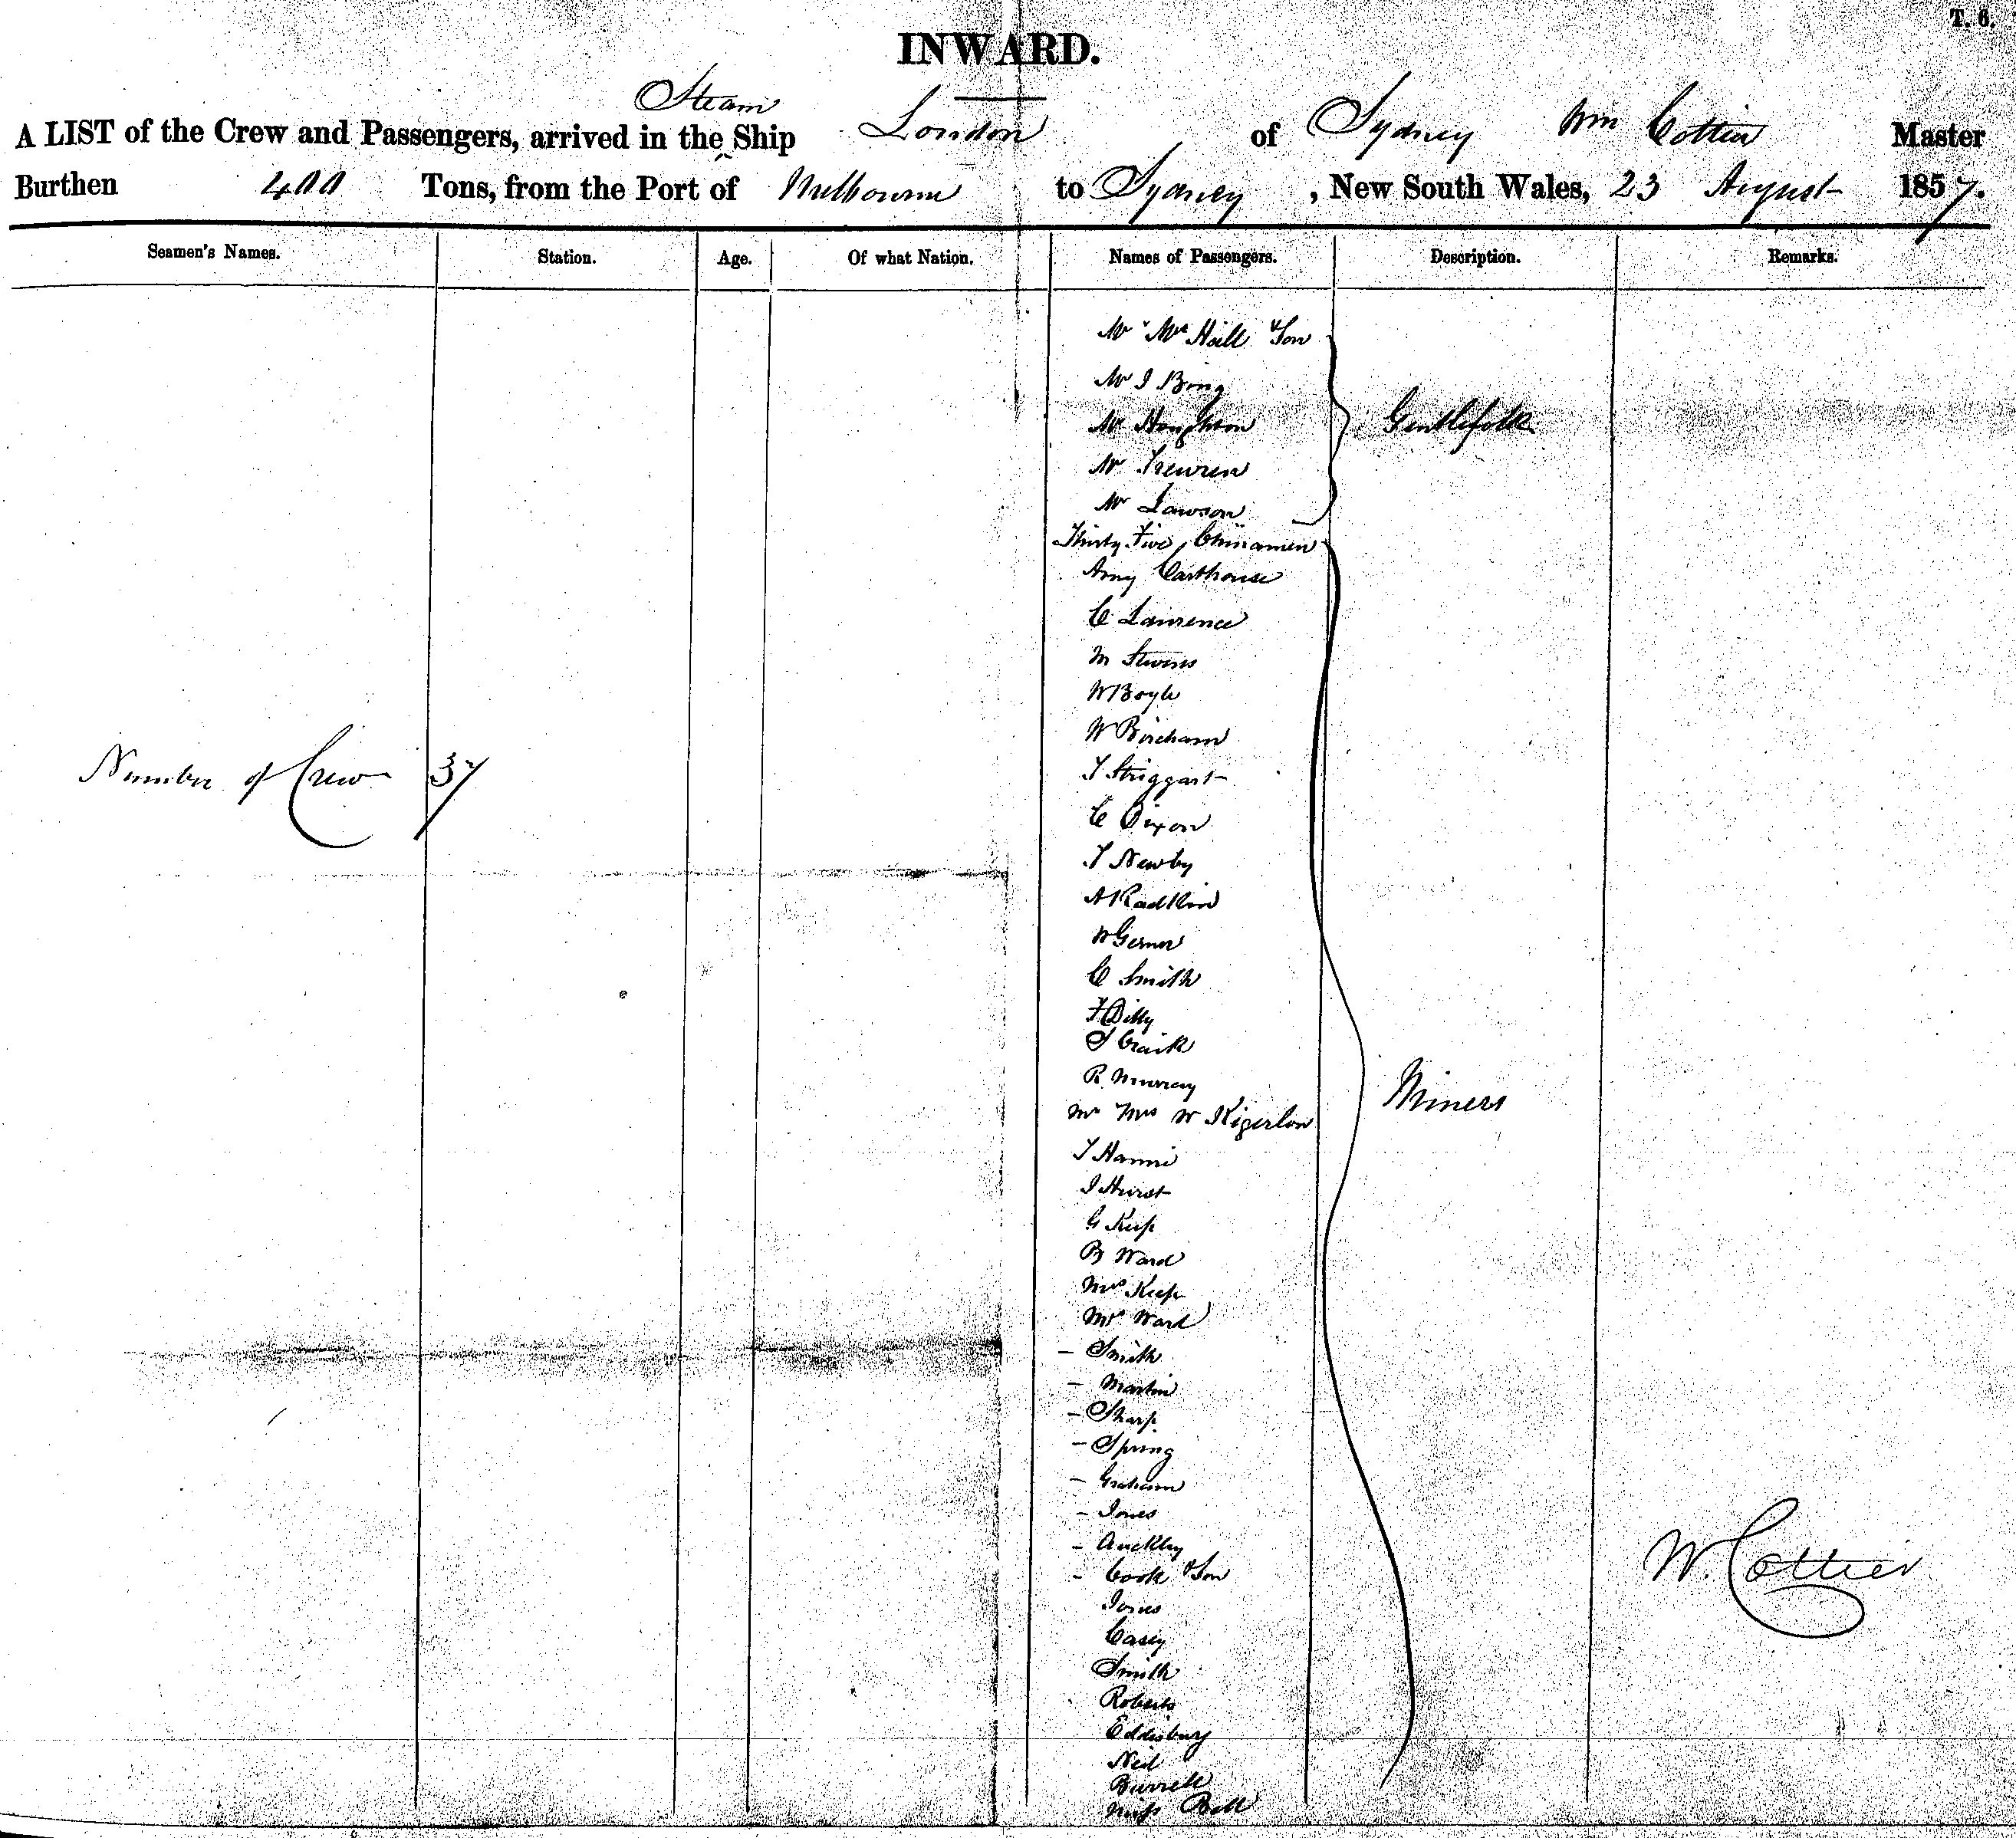 T. 6.
INWARD.
Steam
A LIST of the Crew and Passengers, arrived in the ^ Ship London of Sydney Wm Cottier Master
Burthen 400 Tons, from the Port of Melbourne to Sydney, New South Wales, 23 August 1857.
Seamen's Names. Station. Age. Of what Nation. Names of Passengers. Description. Remarks.
Mr & Mrs Hall & Son
Mr I Bing
Mr Houghton Gentlefolk
Mr Trewren
Mr Lawson
Thirty Five Chinamen
Amy Carthouse
C Lawrence
M Stevens
W Boyle
W Bircham
Number of Crew 37
T Striggart
C Dixon
T Newby
A Radklin
W Gerner
C Smith
F Dilly
S Craik
R Murray
Miners
Mr Mrs W
T
I Hurst
G Keep
B Ward
Mrs Keep
Mrs Ward
- Smith
- Martin
- Sharp
- Spring
- Graham
- Jones
- Auckley
W. Cottier
- Cook & Son
Jones
Casey
Smith
Roberts
Eddisbury
Neil
Burrell
Miss Bell